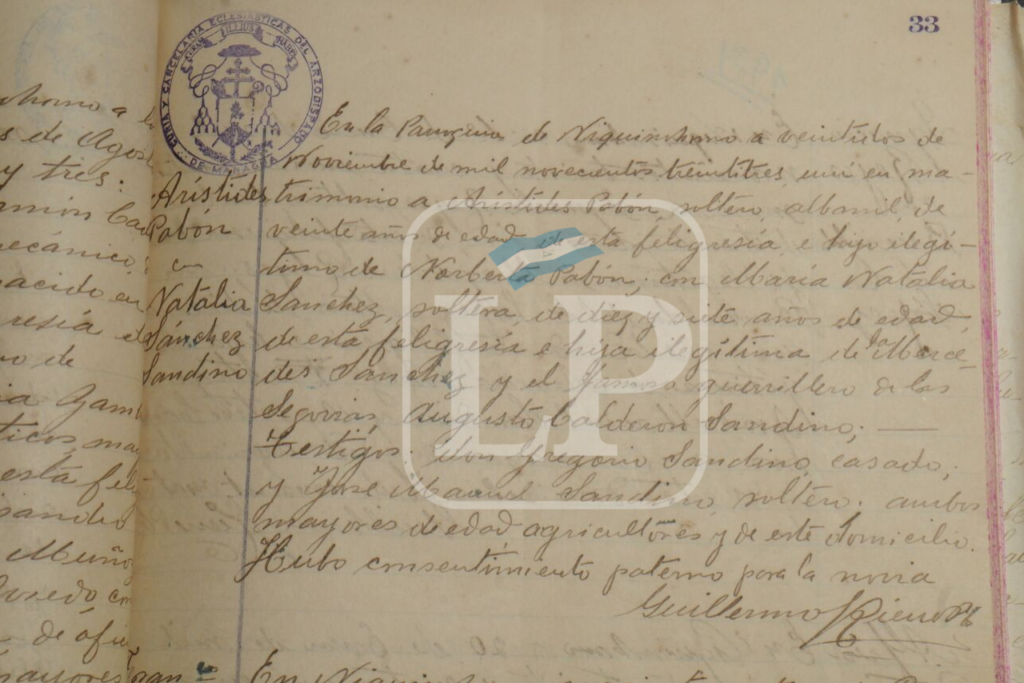 33
CURIA Y CANCELARIA ECLESIASTICAS DEL ARZOBISPADO
DE MANAGUA
homo a la
s de Agos
y tres:
amón
ecánico,
nacido en
resía
o de
ia Gam
ticos, ma
esta fel
Muño
de ofi
mayores
Arístides
Pabón
con
Natalia
Sánchez
Sandino
En la Parroquia de Niquinohomo a veintidos de
Noviembre de mil novecientos treintitres, uní en ma-
trimonio a Arístides Pabón, soltero, albanil, de
veinte años de edad, de esta feligresía e hijo ilegí-
timo de Norberta Pabón; con María Natalia
Sanchez, soltera, de diez y siete años de edad,
de esta feligresía e hija ilegítima de la Merce-
des Sanchez y el famoso guerrillero de las
Segovias, Augusto Calderon Sandino;
Testigos: Don Gregorio Sandino, casado,
y José Manuel Sandino, soltero; ambos
mayores de edad, agricultores y de este domicilio.
Hubo consentimiento paterno para la novia
Guillermo
LP
En Niquinohomo